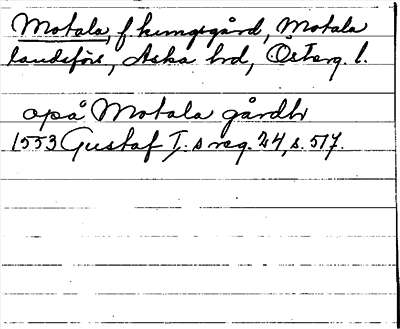 Motala, f kungsgård, Motala
landsförs, Aska hd, Österg. l.
opå Motala gårdh
1553 Gustaf I:s reg. 24, s. 517.